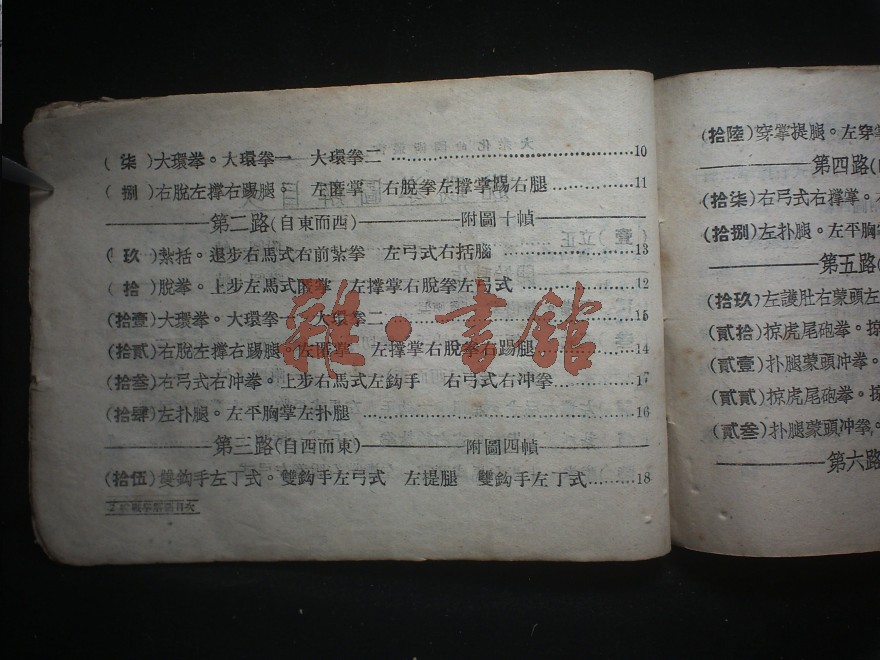 (柒)大環拳。大環拳一 大環拳二 10
(捌)右脫左撐右踢腿。左匿掌 右脫拳左撐掌踢右腿 11
第二路(自東而西) 附圖十幀
(玖)紮括。退步右馬式右前紮拳 左弓式右括腦 13
(拾)脫拳。上步左馬式匿掌 左撐掌右脫拳左弓式 12
(拾壹)大環拳。大環拳一 大環拳二 15
(拾貳)右脫左撐右踢腿。左匿掌 左撐掌右脫拳右踢腿 14
(拾叁)右弓式右冲拳。上步右馬式左鈎手 右弓式右冲拳 17
(拾肆)左扑腿。左平胸掌左扑腿 16
第三路(自西而東) 附圖四幀
(拾伍)雙鈎手左丁式。雙鈎手左弓式 左提腿 雙鈎手左丁式 18
(拾陸)穿掌提腿。左穿
第四路(
(拾柒)右弓式右撐掌。
(拾捌)左扑腿。左平胸
第五路(
(拾玖)左護肚右蒙頭左
(貳拾)掠虎尾砲拳。掠
(貳壹)扑腿蒙頭冲拳。
(貳貳)掠虎尾砲拳。掠
(貳叁)扑腿蒙頭冲拳。
第六路
雜·書館